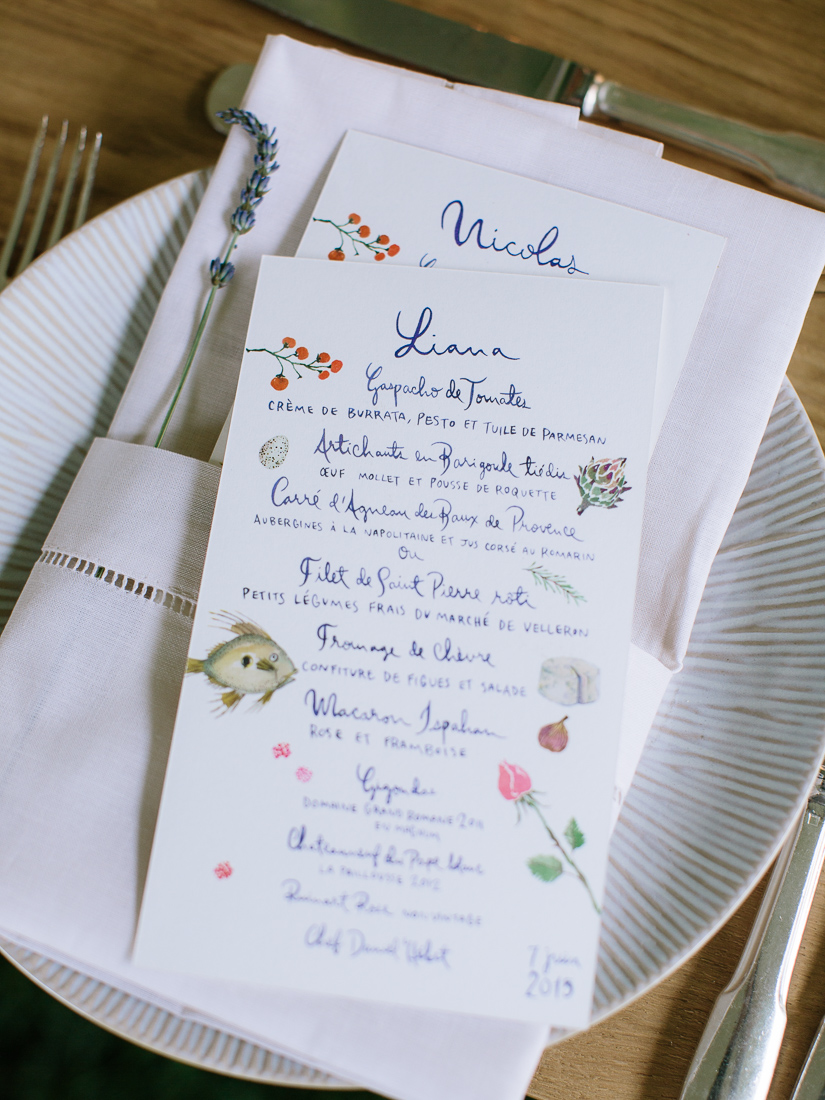 Nicolas
Liana
Gaspacho de Tomates
CRÈME DE BURRATA, PESTO ET TUILE DE PARMESAN
Artichauts en Barigoule tiédis
ŒUF MOLLET ET POUSSE DE ROQUETTE
Carré d'Agneau des Baux de Provence
AUBERGINES À LA NAPOLITAINE ET JUS CORSÉ AU ROMARIN
OU
Filet de Saint Pierre roti
PETITS LÉGUMES FRAIS DU MARCHÉ DE VELLERON
Fromage de Chèvre
CONFITURE DE FIGUES ET SALADE
Macaron Ispahan
ROSE ET FRAMBOISE
Gigondas
DOMAINE GRAND ROMANE
EN MAGNUM
Chateauneuf du Pape blanc
2012
Ruinart Rosé NON VINTAGE
Chef
7 juin
2019